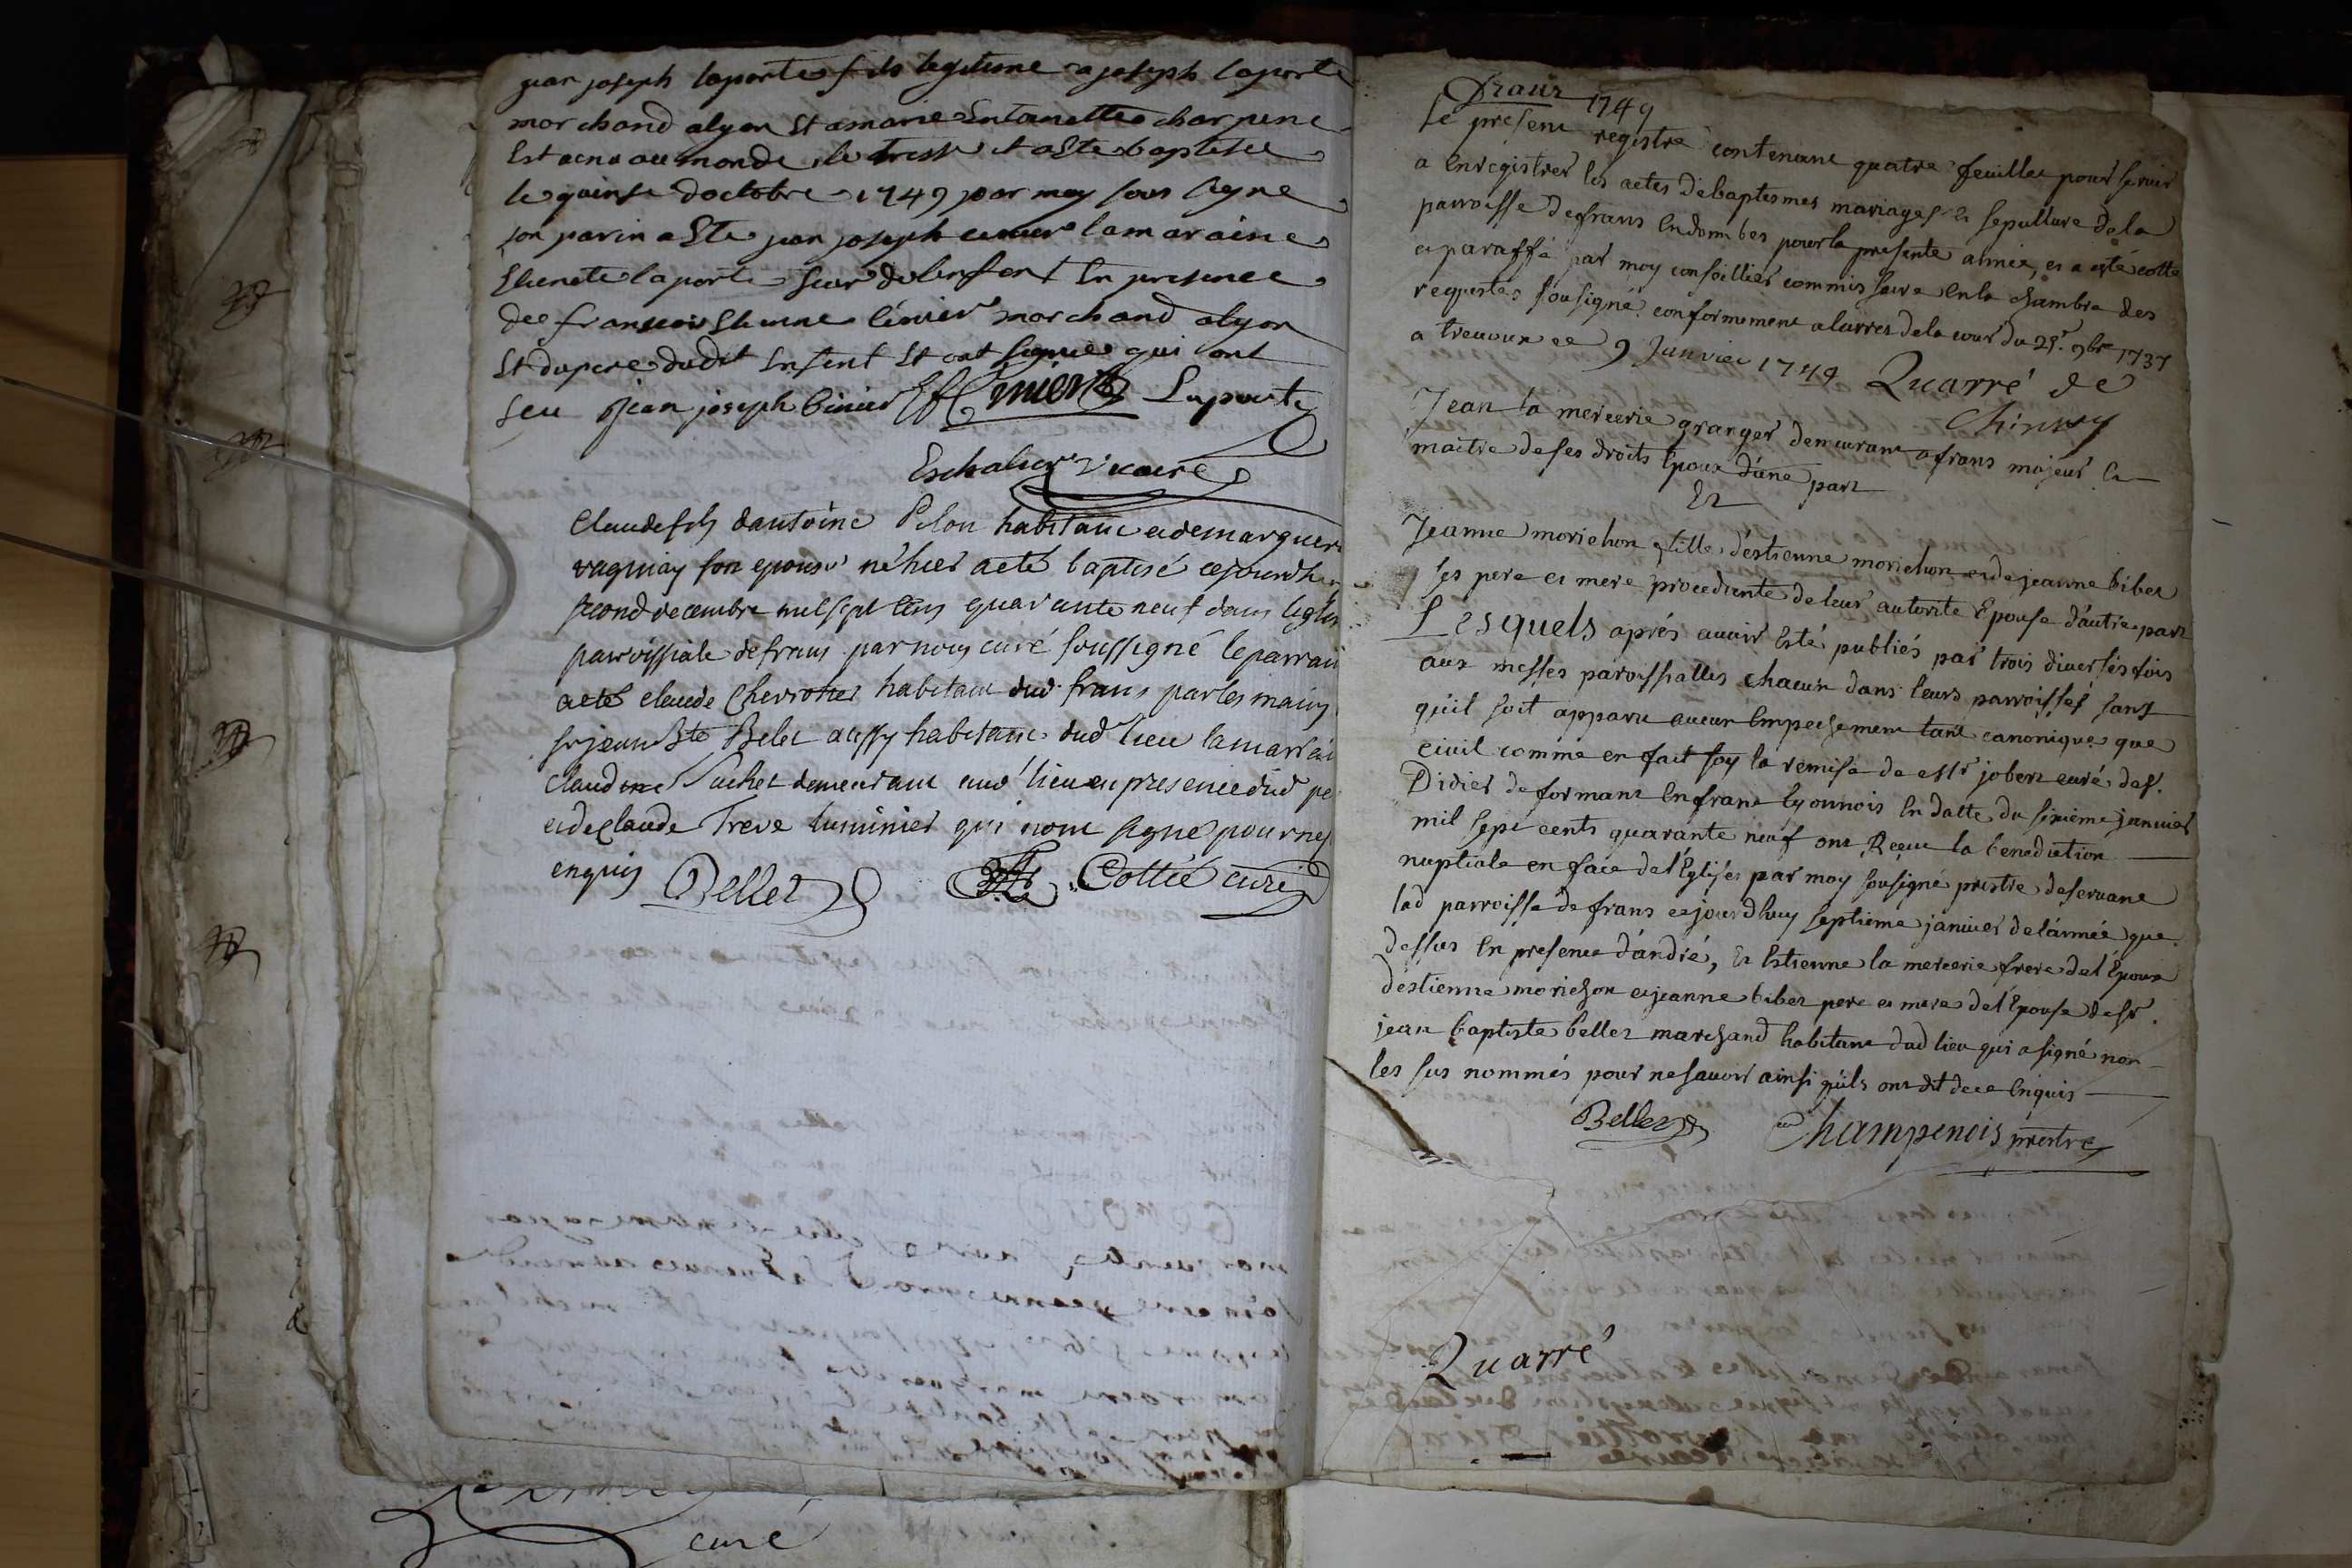 jean joseph laporte fils legitime a joseph laporte
marchand alyon Et amarie Entoinette charpene
Est venu au monde le tresse et a Ete baptisee
le quinse doctobre 1749 par moy sous signe
son parin a Ete jean joseph la maraine
laporte seur delenfent En presence
de fransois Etienne marchand alyon
Et dupere dudit Enfent Et ont signie qui ont
seu jean joseph Laporte
Eschalier vicaire
Claude fils dantoine Pilon habitant et de marguer
vaginay son epouse né hier a eté baptisé cejourdhu
second decembre mil sept cens quarante neuf dans leglis
parroissiale de frans par nous curé soussigné le parrain
a eté claude Chevrotier habitant dud frans par les mains
de sr jean Bte Belet aussy habitant dud lieu la marrain
Claudine Suchet demeurant aud lieu en presence dud pe
et de Claude Treve luminier qui n'ont signé pour ne s
enquis Bellet Cottié curé
curé
Frans 1749
Le present registre contenant quatre feuilles pour servir
a Enregistrer les actes de baptesmes mariages et sepulture de la
parroisse de frans En dombes pour la presente année, et a esté cotté
et paraffé par moy conseillier commissaire en la chambre des
requestes sousigné conformement a larrest de la cour du 25r. 9bre 1737
a trevoux ce 9 Janvier 1749 Quarré de
Jean la mercerie granger demeurant a frans majeur et
maitre de ses droits Epoux d'une part
Et
Jeanne morichon fille d'estienne morichon et de jeanne bibet
ses pere et mere procedante de leur autorite Epouse d'autre part
Lesquels aprés avoir Esté publiés par trois diverses fois
aux messes paroissialles chacun dans leurs parroisses sans
qu'il soit apparu aucun Empechement tant canonique que
civil comme en fait foy la remise de messr jobert curé de st.
Didier de formans En franc Lyonnois En datte du sixieme janvier
mil sept cents quarante neuf ont Receu la benediction
nuptiale en face de l'Eglise par moy sousigné prestre deservant
lad parroisse de frans cejourdhuy septieme janvier de l'année que
dessus En presence d'andré, et Estienne la mercerie frere de l'Epoux
d'estienne morichon et jeanne bibet pere et mere de l'Epouse de sr.
jean baptiste bellet marchand habitant dud lieu qui a signé non
les sus nommés pour ne savoir ainsi qu'ils ont dit de ce Enquis
Bellet Champenois prestre
Quarré